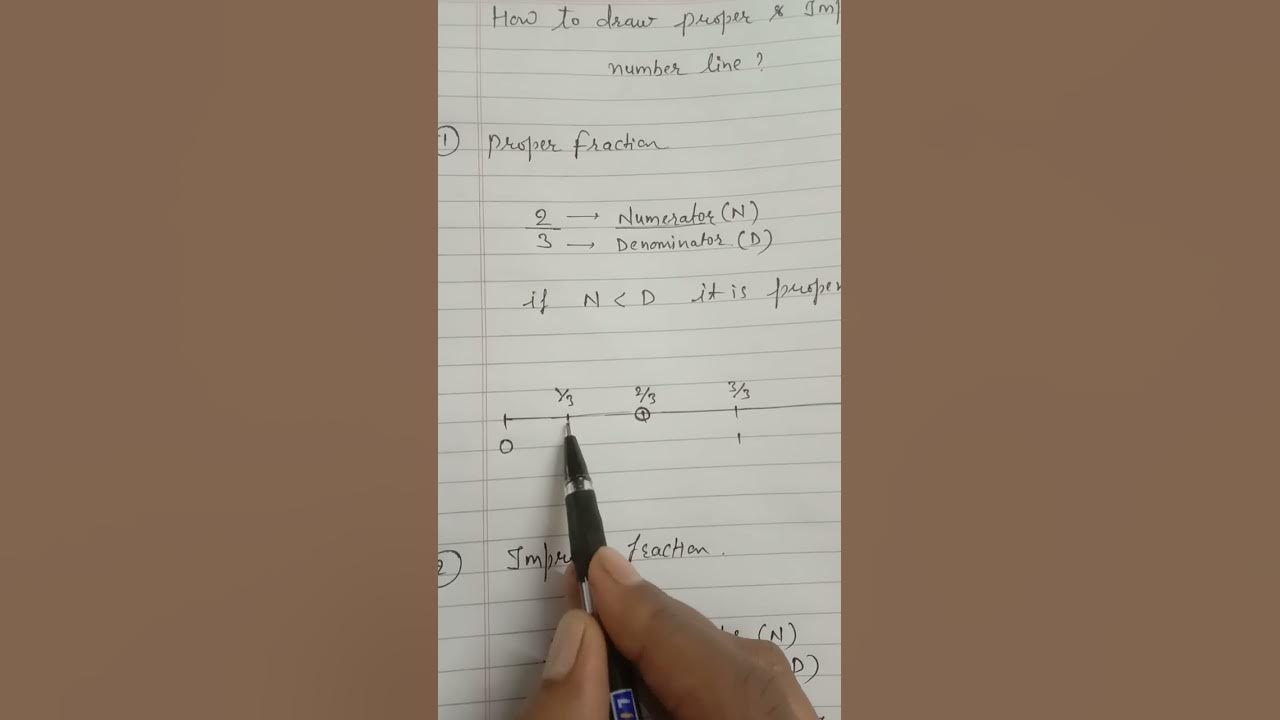 How to draw proper & Imp
number line ?
① proper fraction
2 → Numerator (N)
3 → Denominator (D)
if N < D it is proper
1/3 2/3 3/3
0 1
② fraction .
(N)
D)